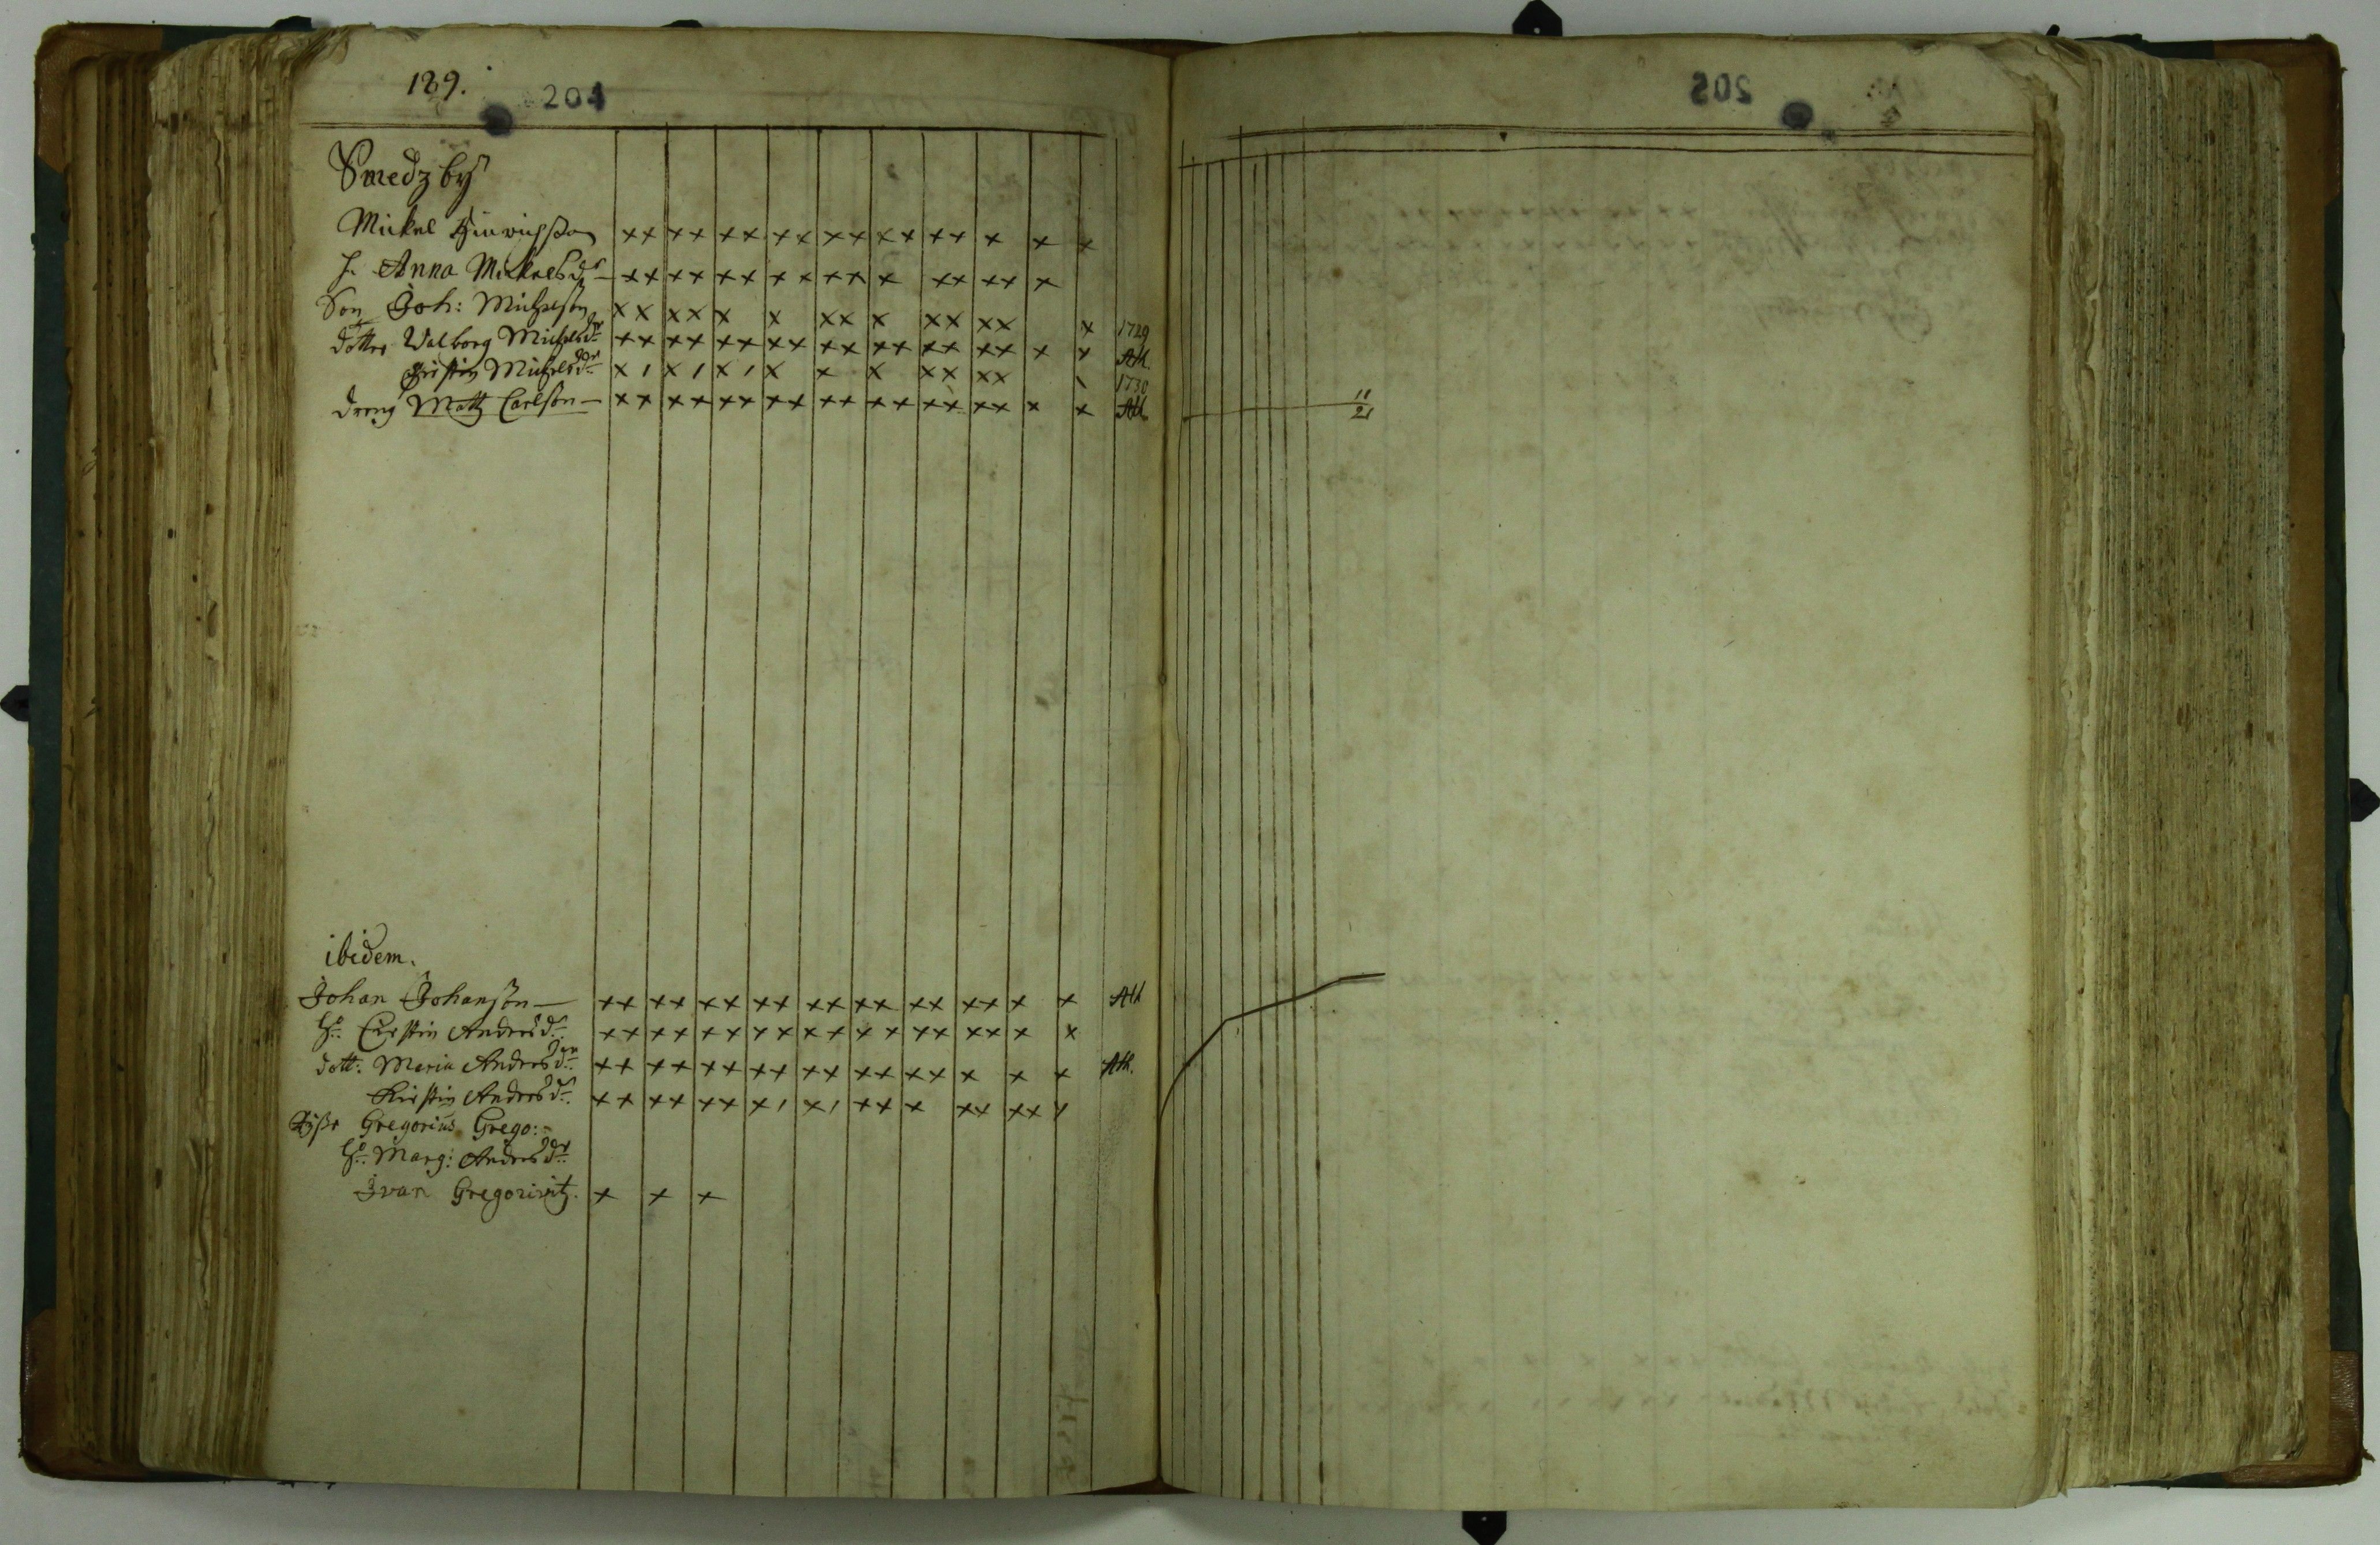 189. 204
Smedzby
Mickel Hinrichßon xx xx xx xx xx xx xx x x x
h. Anna Mickaelsdr xx xx xx xx xx x xx xx x
Son Joh: Michelson xx xx x x xx x xx xx x 1729
dotter Walborg Michelsdr xx xx xx xx xx xx xx xx x x Att.
Kirstin Michelsdr x / x / x / x x x xx xx \ 1730
dreng Matz Carlson — xx xx xx xx xx xx xx xx x x Att.
ibidem.
Johan Johanson — xx xx xx xx xx xx xx xx x x Att
H: Cirstin Andersdr xx xx xx xx xx xx xx xx x x
dott: Maria Andersdr xx xx xx xx xx xx xx x x x Att.
Kirstin Andersdr xx xx xx x/ x/ xx x xx xx x
Gregorius Grego:
H: Marg: Andersdr
Ivan Gregoriwitz. x x x
205
11
21